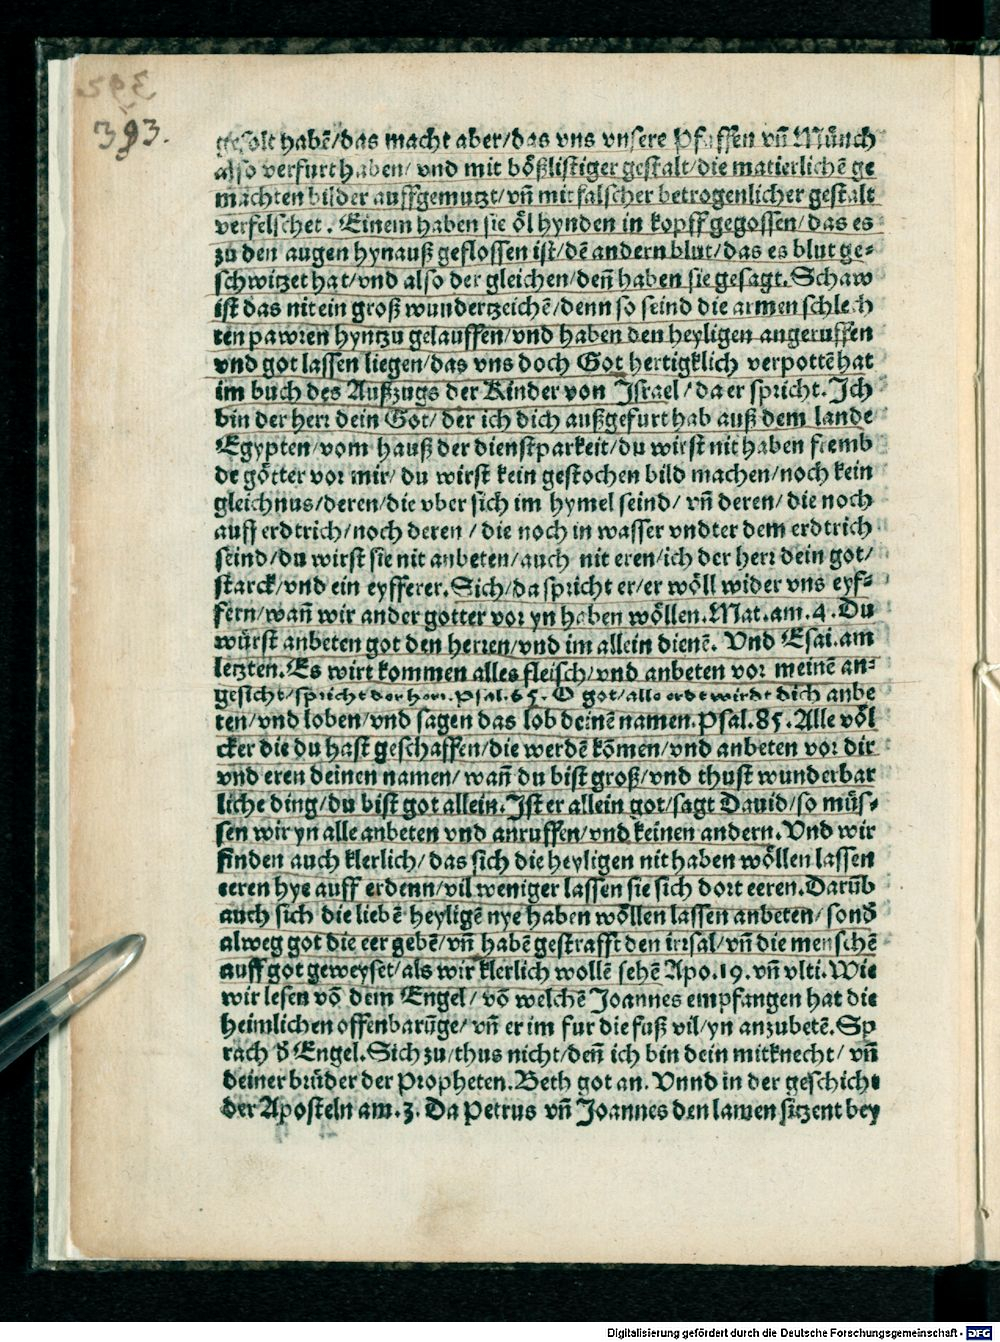 393.
gesolt habẽ/das macht aber/das vns vnsere Pfaffen vñ Münch
also verfurt haben/ vnd mit bößlistiger gestalt/die matierlichẽ ge
machten bilder auffgemutzt/vñ mit falscher betrogenlicher gestalt
verfelschet . Einem haben sie öl hynden in kopff gegossen/das es
zu den augen hynauß geflossen ist/dẽ andern blut/das es blut ge⸗
schwitzet hat/vnd also der gleichen/deñ haben sie gesagt. Schaw
ist das nit ein groß wunderzeichẽ/denn so seind die armen schlech
ten pawren hyntzu gelauffen/vnd haben den heyligen angeruffen
vnd got lassen liegen/das vns doch Got hertigklich verpottẽ hat
im buch des Außzugs der Kinder von Israel/da er spricht. Ich
bin der herr dein Got/ der ich dich außgefurt hab auß dem lande
Egypten/vom hauß der dienstparkeit/du wirst nit haben fremb
de götter vor mir/ du wirst kein gestochen bild machen/noch kein
gleichnus/deren/die vber sich im hymel seind/ vñ deren/ die noch
auff erdtrich/noch deren / die noch in wasser vndter dem erdtrich
seind/du wirst sie nit anbeten/auch nit eren/ich der herr dein got/
starck/vnd ein eyfferer. Sich/da spricht er/er wöll wider vns eyf⸗
fern/wañ wir ander gotter vor yn haben wöllen. Mat.am.4. Du
würst anbeten got den herren/vnd im allein dienẽ. Vnd Esai.am
letzten. Es wirt kommen alles fleisch/vnd anbeten vor meinẽ an⸗
gesicht/spricht der herr. Psal.65. O got/alle erde wirdt dich anbe
ten/vnd loben/vnd sagen das lob deinẽ namen. Psal.85. Alle völ
cker die du hast geschaffen/die werdẽ kõmen/vnd anbeten vor dir
vnd eren deinen namen/ wañ du bist groß/vnd thust wunderbar
liche ding/du bist got allein. Ist er allein got/sagt Dauid/so müs⸗
sen wir yn alle anbeten vnd anruffen/vnd keinen andern. Vnd wir
finden auch klerlich/das sich die heyligen nit haben wöllen lassen
eeren hye auff erdenn/vil weniger lassen sie sich dort eeren. Darũb
auch sich die liebẽ heyligẽ nye haben wöllen lassen anbeten/ sonđ
alweg got die eer gebẽ/vñ habẽ gestrafft den irrsal/vñ die menschẽ
auff got geweyset/als wir klerlich wollẽ sehẽ Apo.19. vñ vlti. Wie
wir lesen võ dem Engel/ võ welchẽ Joannes empfangen hat die
heimlichen offenbarũge/ vñ er im fur die fuß vil/yn anzubetẽ. Sp
rach đ Engel. Sich zu/thus nicht/deñ ich bin dein mitknecht/ vñ
deiner brüder der Propheten. Beth got an. Vnnd in der geschicht
der Aposteln am.3. Da Petrus vñ Joannes den lamen sitzent bey
Digitalisierung gefördert durch die Deutsche Forschungsgemeinschaft - DFG